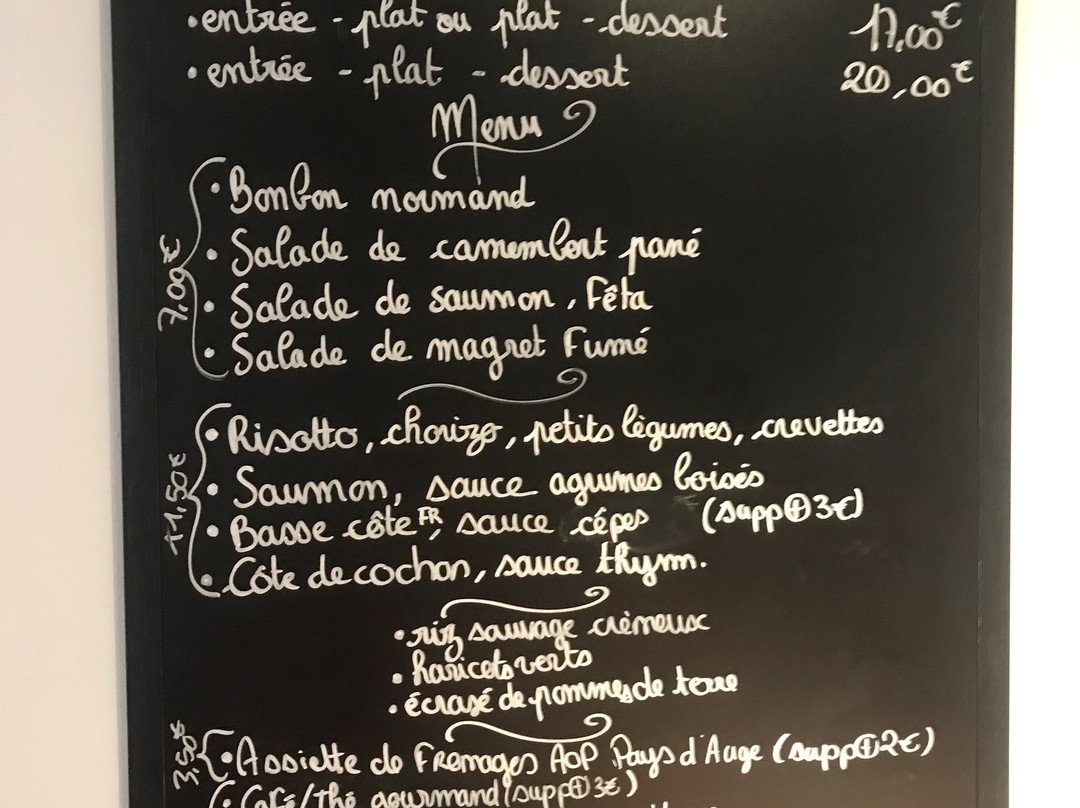 • entrée - plat ou plat - dessert 17,00€
• entrée - plat - dessert 20,00€
Menu
7,00€
• Bonbon normand
• Salade de camembert pané
• Salade de saumon, Fêta
• Salade de magret Fumé
11,50€
• Risotto, chorizo, petits légumes, crevettes
• Saumon, sauce agrumes boisés
• Basse côte FR, sauce cépes (supp⊕3€)
• Côte de cochon, sauce thym.
• riz sauvage crèmeux
• haricots verts
• écrasé de pommes de terre
3,50$
• Assiette de Fromages AOP Pays d'Auge (supp⊕2€)
• Café/Thé gourmand (supp⊕3€)